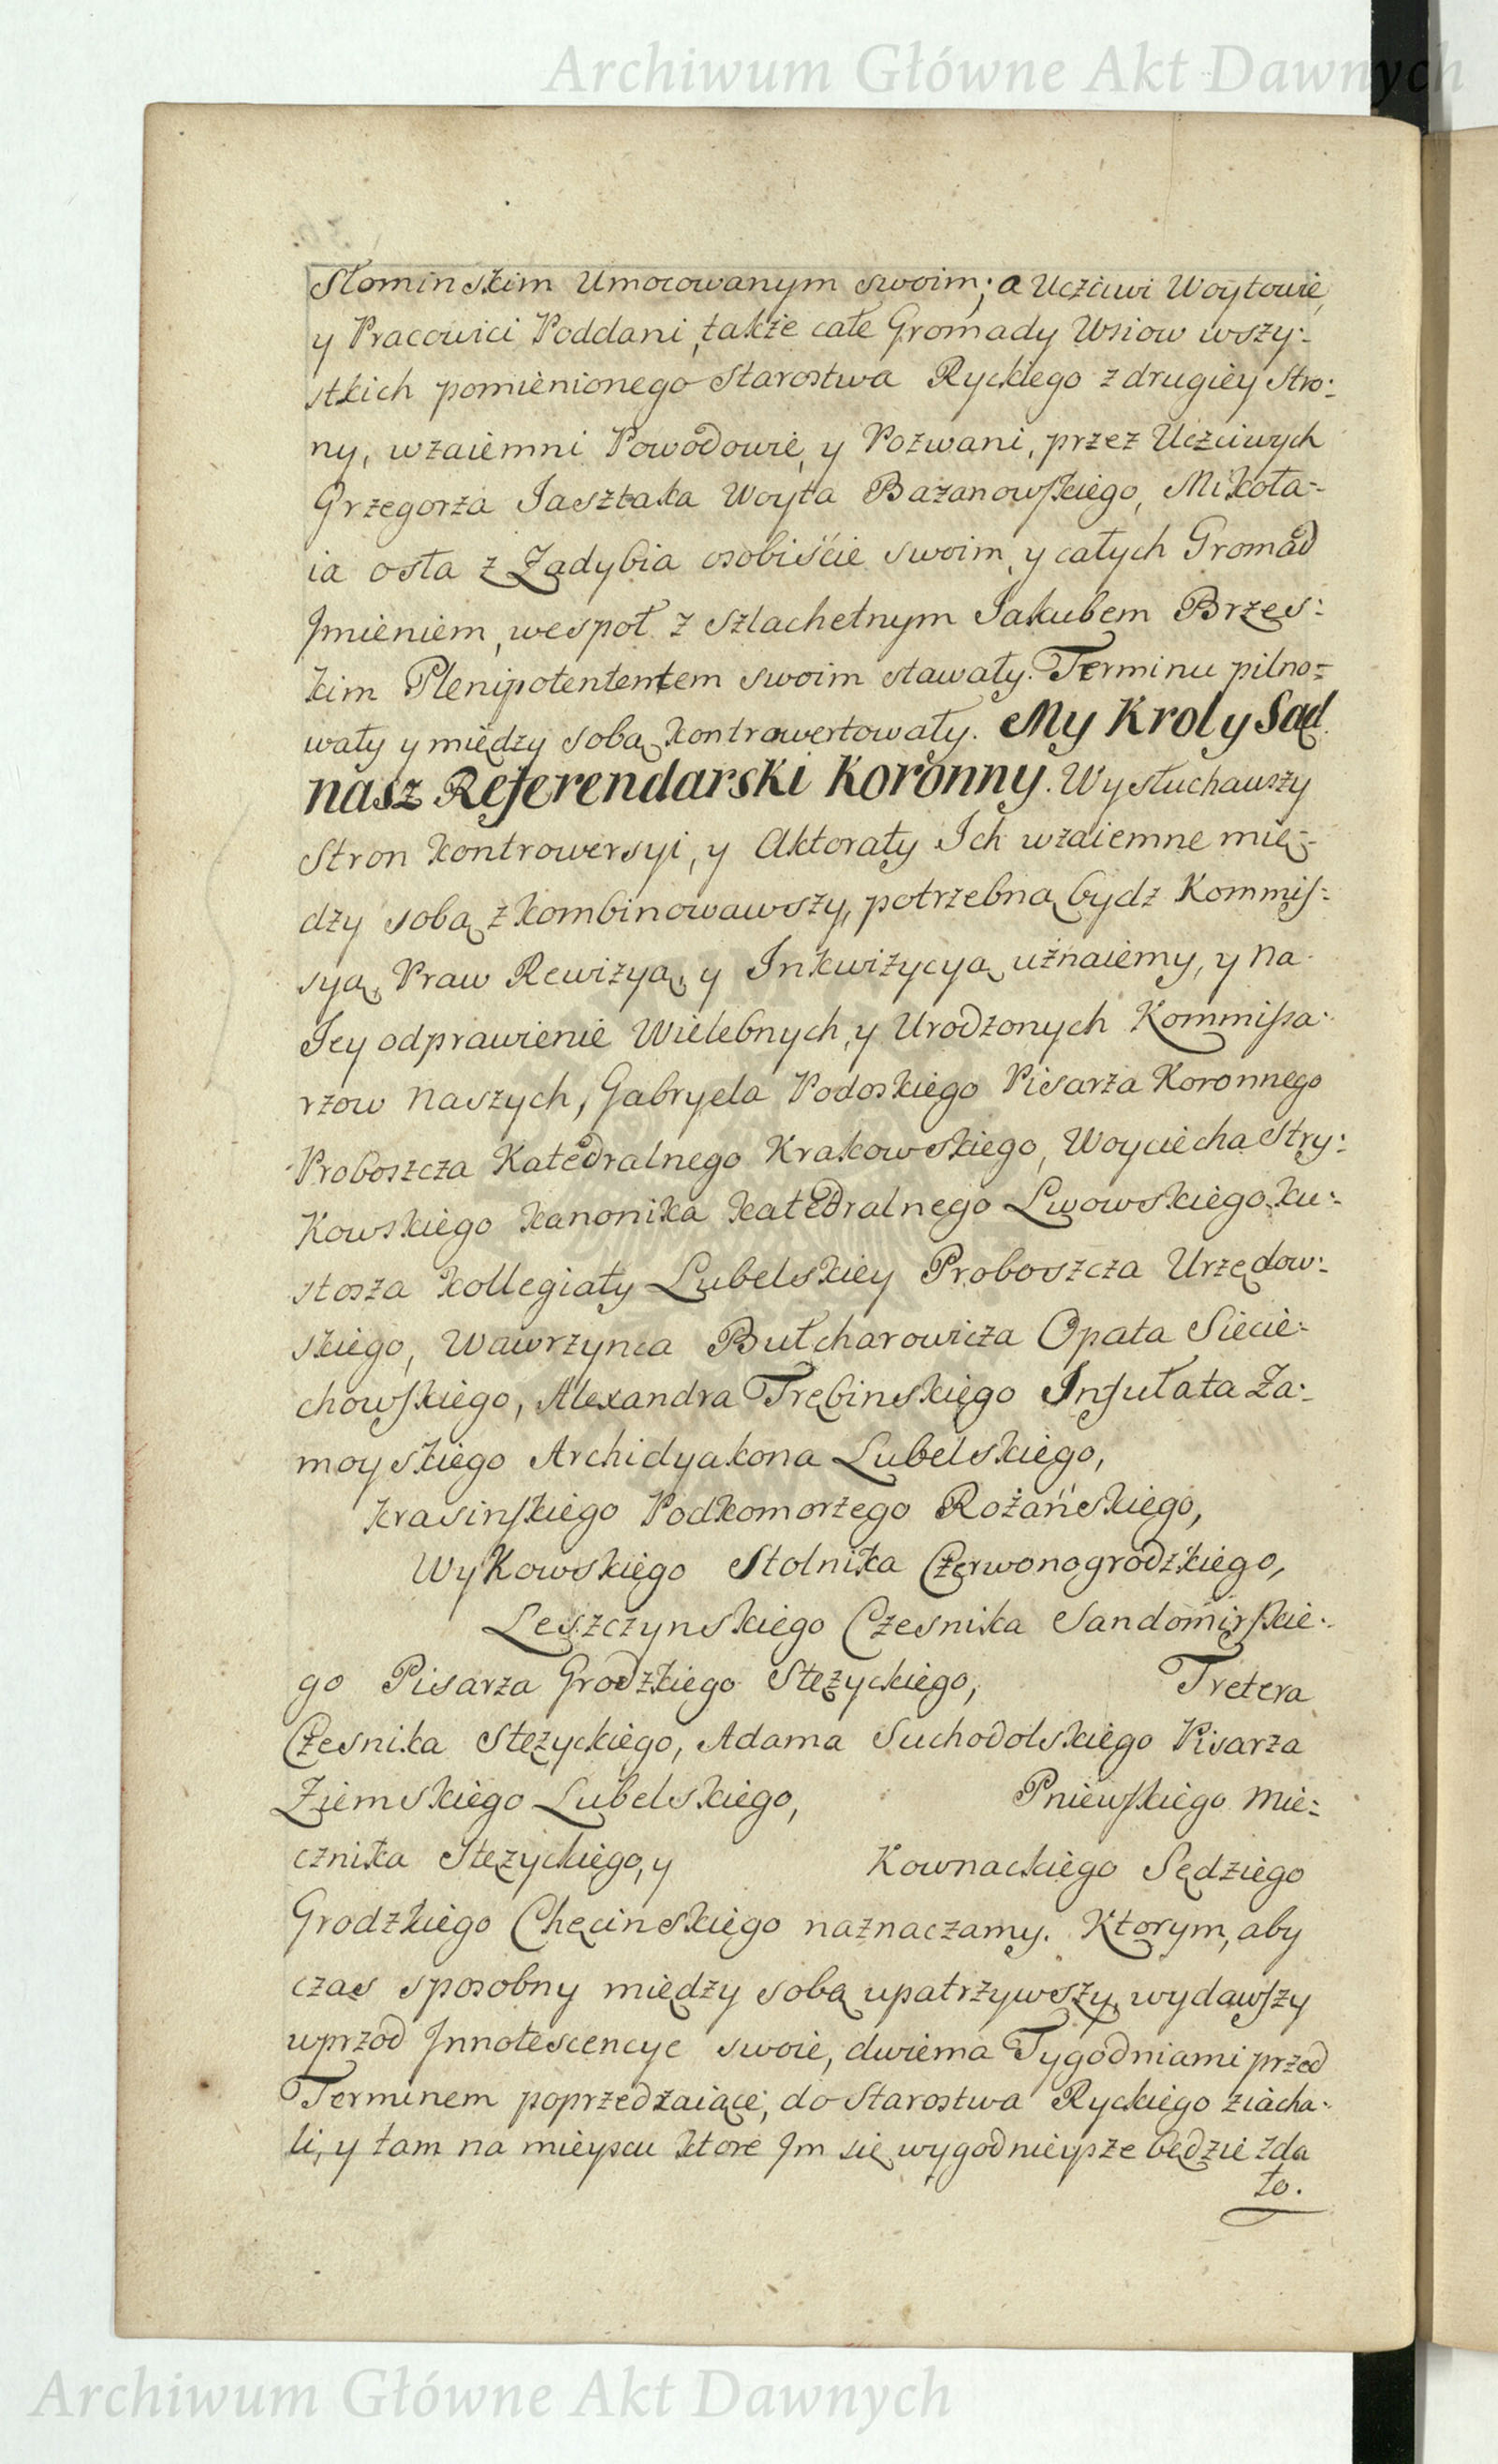 Archiwum Główne Akt Dawnych
Słominskim Umocowanym swoim; a Uczciwi Woytowie,
y Pracowici Poddani, także całe Gromady Wsiow wszy:
stkich pomienionego Starostwa Ryckiego z drugiey Stro:
ny, wzaiemni Powodowie, y Pozwani, przez Uczciwych
Grzegorza Jasztaka Woyta Bazanowskiego, Mikoła-
ia osła z Zadybia osobiście swoim, y całych Gromad
Jmieniem, wespoł z Szlachetnym Jakubem Brzes:
kim Plenipotententem swoim stawały. Terminu pilno=
wały y między sobą kontrowertowały. My Krol y Sąd
nasz Referendarski Koronny. Wysłuchawszy
Stron kontrowersyi, y Aktoraty Ich wzaiemne mię-
dzy sobą zkombinowawszy, potrzebną bydz Kommis:
syą, Praw Rewizyą, y Inkwizycyą uznaiemy, y na
Jey odprawienie Wielebnych, y Urodzonych Kommissa:
rzow naszych, Gabryela Podoskiego Pisarza Koronnego
Proboszcza Katedralnego Krakowskiego, Woyciecha Stry:
Kowskiego Kanonika Katedralnego Lwowskiego, Ku:
stosza Kollegiaty Lubelskiey Proboszcza Urzędow:
skiego, Wawrzynca Bułcharowicza Opata Siecie:
chowskiego, Alexandra Trębinskiego Infułata Za:
moyskiego Archidyakona Lubelskiego,
Krasinskiego Podkomorzego Rożańskiego,
WyKowskiego Stolnika Czerwonogrodzkiego,
Leszczynskiego Czesnika Sandomirskie:
go Pisarza Grodzkiego Stężyckiego, Tretera
Czesnika Stężyckiego, Adama Suchodolskiego Pisarza
Ziemskiego Lubelskiego, Pniewskiego Mie:
cznika Stężyckiego, y Kownackiego Sędziego
Grodzkiego Chęcinskiego naznaczamy. Ktorym, aby
czas sposobny między sobą upatrzywszy, wydawszy
wprzod Jnnotescencye swoie, dwiema Tygodniami przed
Terminem poprzedzaiące, do Starostwa Ryckiego ziacha:
li, y tam na mieyscu ktore Jm się wygodnieysze będzie zda
ło.
Archiwum Główne Akt Dawnych